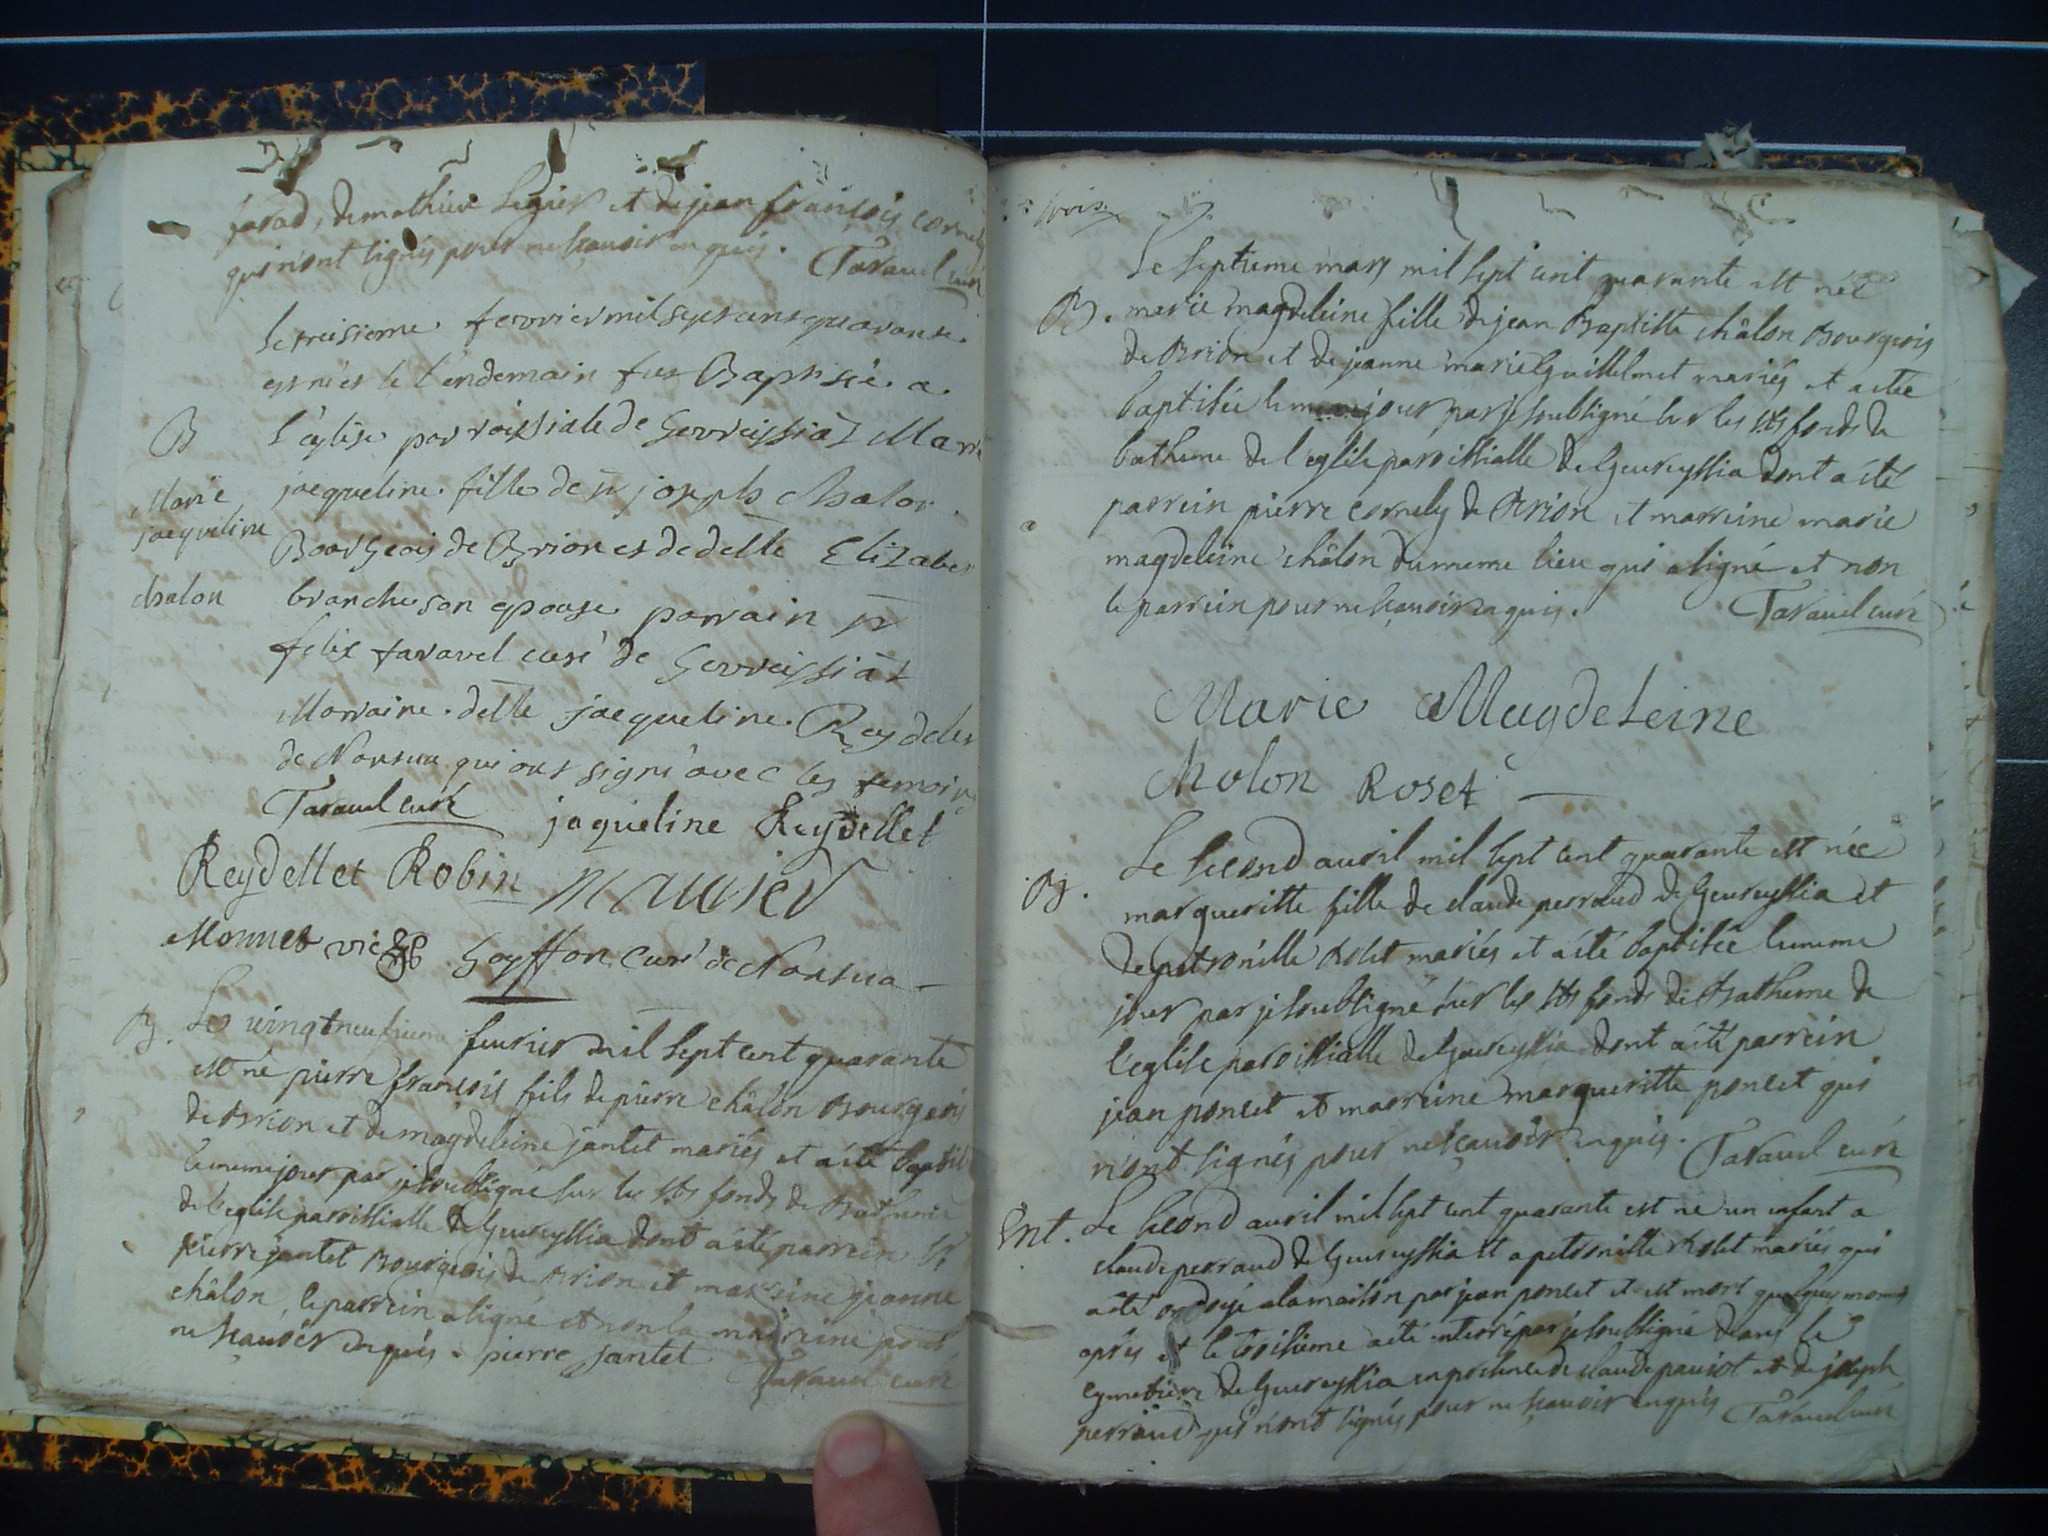 farad, de mathieu Legier et de jean françois cornely
qui n'ont signés pour ne sçauoir enquis. Tarauel curé
Le treisieme fevrier mil sept cent quarante
est née et le l'endemain fut Baptisée a
B l'église parroissiale de Gevreissiat Marie
Marie jacqueline jacqueline fille de sr joseph chalon
Bourgeois de Brion et de delle Elizabet
chalon branche son epouse parrain sr
felix taravel curé de Gevreissiat
Marraine delle jacqueline Reydelet
de Nantua qui ont signé avec les temoins
Tarauel curé jaqueline Reydellet
Reydellet Robin maurier
Monnet vic Goyffon Curé de Nantua
B. Le vingt neufieme feurier mil sept cent quarante
est né pierre françois fils de pierre châlon Bourgeois
de Brion et de magdeleine jantet mariés et a été baptisé
le meme jour par je soubsigné sur les sts fonds de Batheme
de l'eglise paroissialle de Geureyssia dont a été parrein sr
pierre jantet Bourgeois de Brion et marreine jeanne
châlon, le parrein a signé et non la marreine pour
ne sçauoir enquis. pierre jantet Tarauel curé
Le septieme mars mil sept cent quarante est née
B. marie magdeleine fille de jean Baptiste châlon Bourgeois
de Brion et de jeanne marie Guillelmet mariés et a été
baptisée le meme jour par je soubsigné sur les sts fonds de
batheme de l'eglise paroissialle de Geureyssia dont a été
parrein pierre cornely de Brion et marreine marie
magdeleine châlon du meme lieu qui a signé et non
le parrein pour ne sçauoir enquis. Tarauel curé
Marie Magdeleine
Chalon Roset
Le second auril mil sept cent quarante est née
B. margueritte fille de claude perraud de Geureyssia et
de petronille Rolet mariés et a été baptisée le meme
jour par je soubsigné sur les sts fonds de Batheme de
l'eglise paroissialle de Geureyssia dont a été parrein
jean poncet et marreine margueritte poncet qui
n'ont signés pour ne sçauoir enquis. Tarauel curé
Ent. Le second auril mil sept cent quarante est né un enfant a
claude perraud de Geureyssia et a petronille Rolet mariés qui
a été ondoyé a la maison par jean poncet et est mort quelques momens
après et le troisieme a été enterré par je soubsigné dans le
cymetiere de Geureyssia en presence de claude pauiot et de joseph
perraud qui n'ont signés pour ne sçauoir enquis Tarauel curé